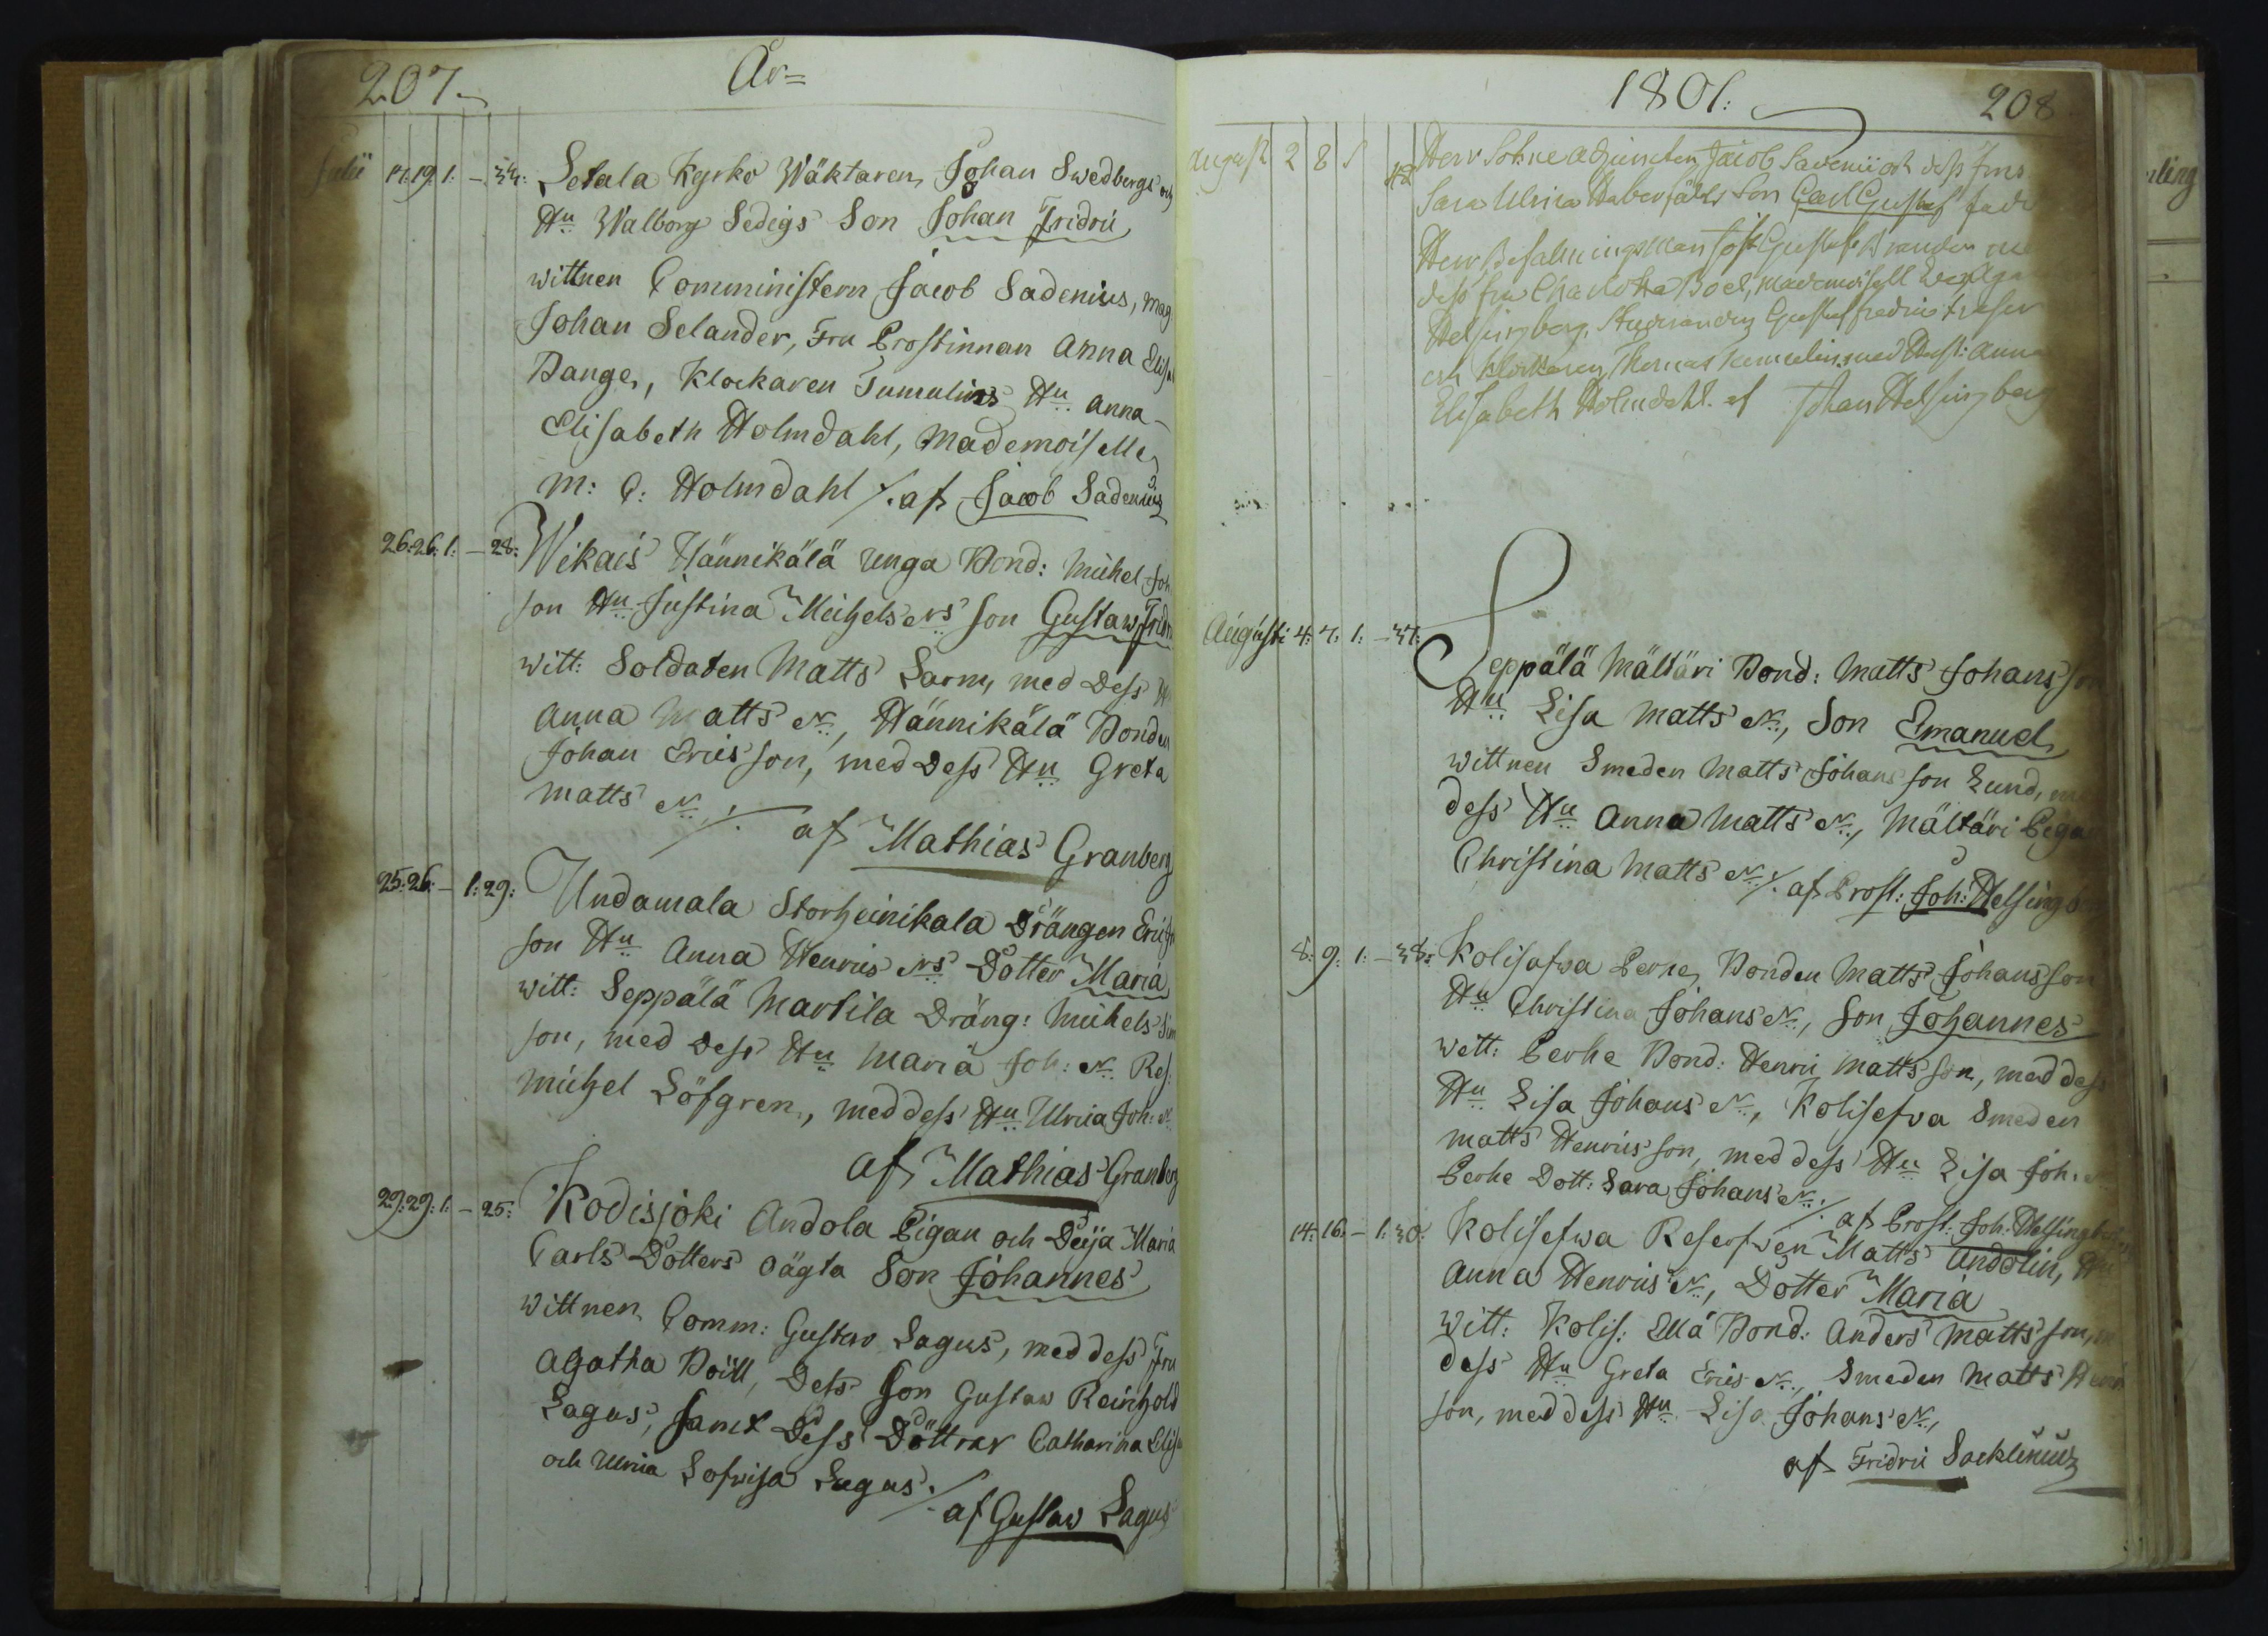 207
År=
Julii 17. 19. 1. — 34. Letala Kyrko Wäktaren Johan Swedbergs och
Hu Walborg Sedigs Son Johan Fridric
wittnen Comministern Jacob Sadenius, Mag
Johan Selander, Fru Prostinnan Anna Elisa
Bange, Klockaren Tumulins Hu Anna
Elisabeth Holmdahl, Mademoiselle
M: C: Holmdahl /. af Jacob Sadenius
26. 26. 1. — 28. Wikais Hännikälä unga Bond: Michel Joh
son Hu Justina Michels Nrs Son Gustaw Fridric
witt: Soldaten Matts Larm, med Dess H
Anna Matts N., Hännikälä Bonden
Johan Erics son, med Dess Hu Greta
Matts N. /.
af Mathias Granberg
25. 26. — 1. 29. Undamala Storheinikala Drängen Eric
son Hu Anna Henrics Nrs Dotter Maria
witt: Seppälä Martila Dräng: Michels Sim
son, med Dess Hu Maria Joh: N. Res:
Michel Löfgren, med dess Hu Ulrica Joh: N
af Mathias Granberg
29. 29. 1. — 25. Kodisjoki Andola Pigan och Deija Maria
Carls Dotters oägta Son Johannes
Wittnen Comm: Gustav Lagus, med dess Fru
Agatha Doill, Dess Son Gustaw Reinhold
Lagus, samt Dess Döttrar Catharina Elisa
och Ulrica Lofwisa Lagus. /
af Gustaw Lagus
1801:
208
August 2 8 1 42 Herr Sokne adjuncten Jacob Savenii och dess Frus
Sara Ulrica Haberfälts Son Carl Gustaf
Herr Befalningsman Gustaf Brander
dess fru Charlotta Boel, Mademoisell
Helsingberg, Studeranden Gustaf
och Klockaren Thomas Tumulin med Hust: Anna
Elisabeth Holmdahl. af Johan Helsingberg
Augusti 4. 7. 1. — 37. Seppälä Mältäri Bond: Matts Johans son
Hu Lisa Matts N., Son Emanuel
wittnen Smeden Matts Johans son Lund,
dess Hu Anna Matts N., Mältäri Piga
Christina Matts N. /. af Prost: Joh: Helsingb
8. 9. 1. — 38. Kolisefwa Perhe Bonden Matts Johansson
Hu Christina Johans N., Son Johannes
witt: Perhe Bond: Henric Matts son, med dess
Hu Lisa Johans N., Kolisefva Smeden
Matts Henrics son, med dess Hu Lisa Joh:
Perhe Dott: Sara Johans N. /. af Prost: Joh: Helsingb
14. 16. — 1. 30. Kolisefwa Reserfwen Matts Andolin, Hu
Anna Henrics N., Dotter Maria
Witt: Kolis: Ellä Bond: Anders Matts son,
dess Hu Greta Erics N., Smeden Matts Henric
son, med dess Hu Lisa Johans N.,
af Fridric Sacklinius